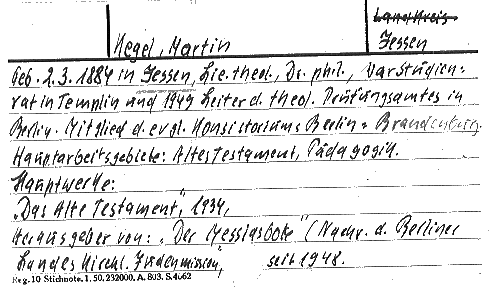 Landkreis
Hegel, Martin Jessen
Geb. 2.3.1884 in Jessen, Lic. theol., Dr. phil., war Studien-
rat in Templin und 1949 Leiter d. theol. Prüfungsamtes in
Berlin. Mitglied d. evgl. Konsistoriums Berlin-Brandenburg.
Hauptarbeitsgebiete: Altes Testament, Pädagogik.
Hauptwerke:
„Das Alte Testament", 1934,
Herausgeber von: „Der Messiasbote" (Nachr. d. Berliner
Landeskirchl. Judenmission, seit 1948.
Reg. 10 Stichnote. 1. 50. 232000. A. 803. S. 4062